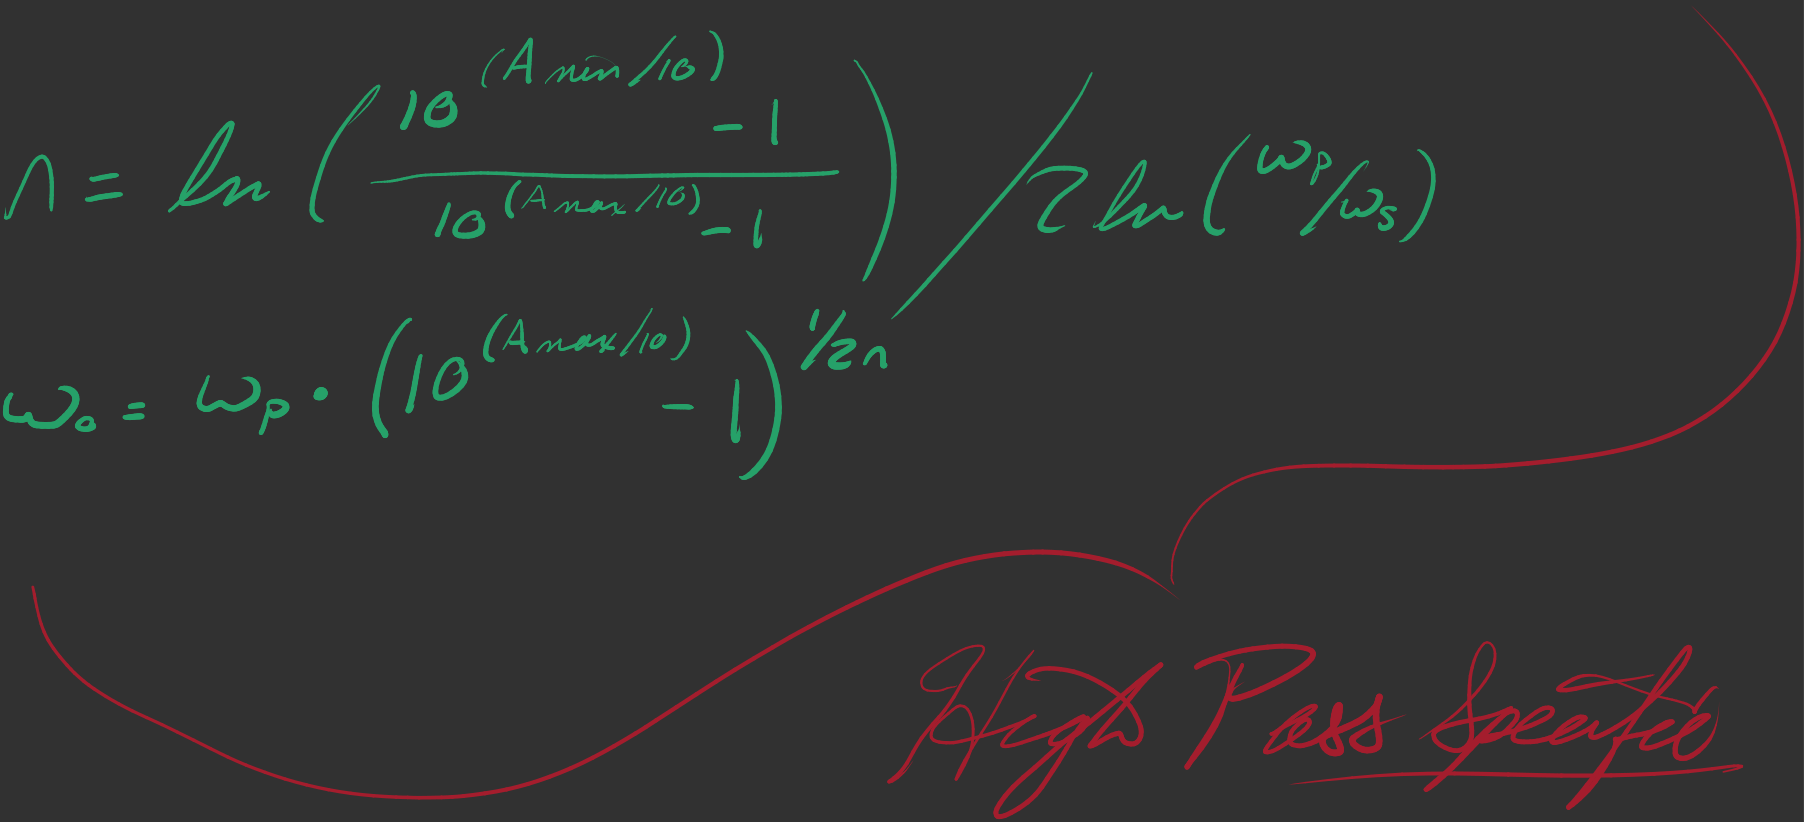 n = ln ( (10^(Amin/10) - 1) / (10^(Amax/10) - 1) ) / 2 ln (ωp/ωs)
ω₀ = ωp · (10^(Amax/10) - 1)^1/2n
High Pass Specific